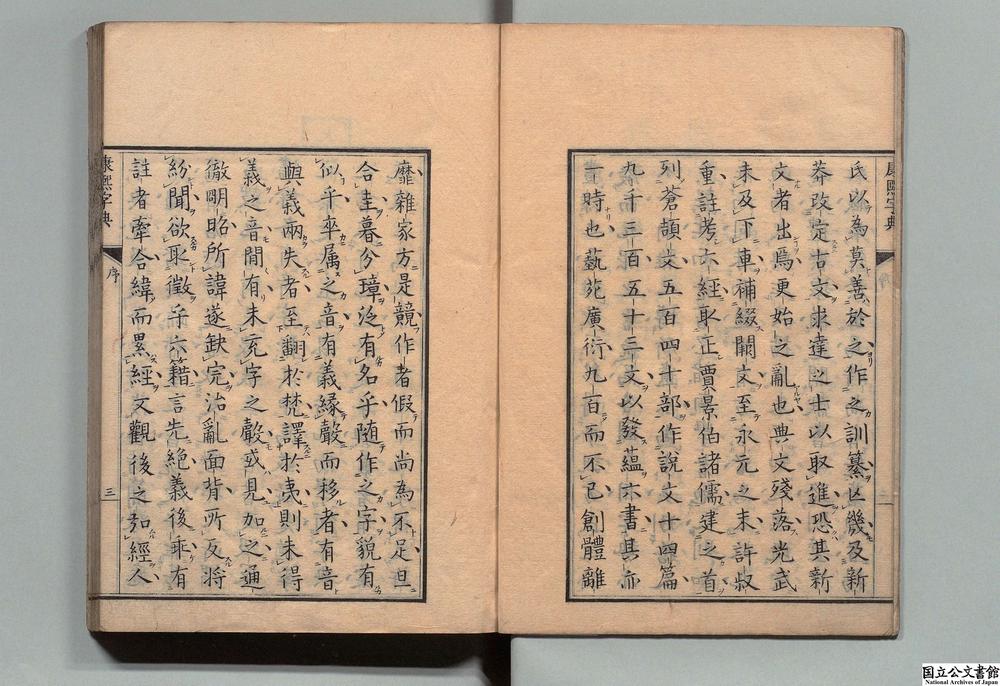 康熙字典
序
氏以為莫善於之作之訓纂凶幾及新
莽改定古文求達之士以取進恐其新
文者出焉更始之亂也典文殘落光武
未及下車補綴闕文至永元之末許叔
重註考六經取正賈景伯諸儒建之首
列蒼頡文五百四十部作說文十四篇
九千三百五十三文以發蘊六書其亦
一時也藝苑廣衍九百而不已創體離
靡雜家方是競作者假而尚為不足旦
合圭暮分璋泛有名乎随作之字貌有
似乎率属之音有義緣聲而移者有音
與義兩失者至翻於梵譯於夷則未得
義之音間有未充字之聲或見加之通
徹明昭所諱遂缺完治亂面背所反将
紛聞欲取徵乎六籍言先絶義後乖有
註者牽合緯而累經文觀後之如經人
康熙字典
序
三
国立公文書館
National Archives of Japan